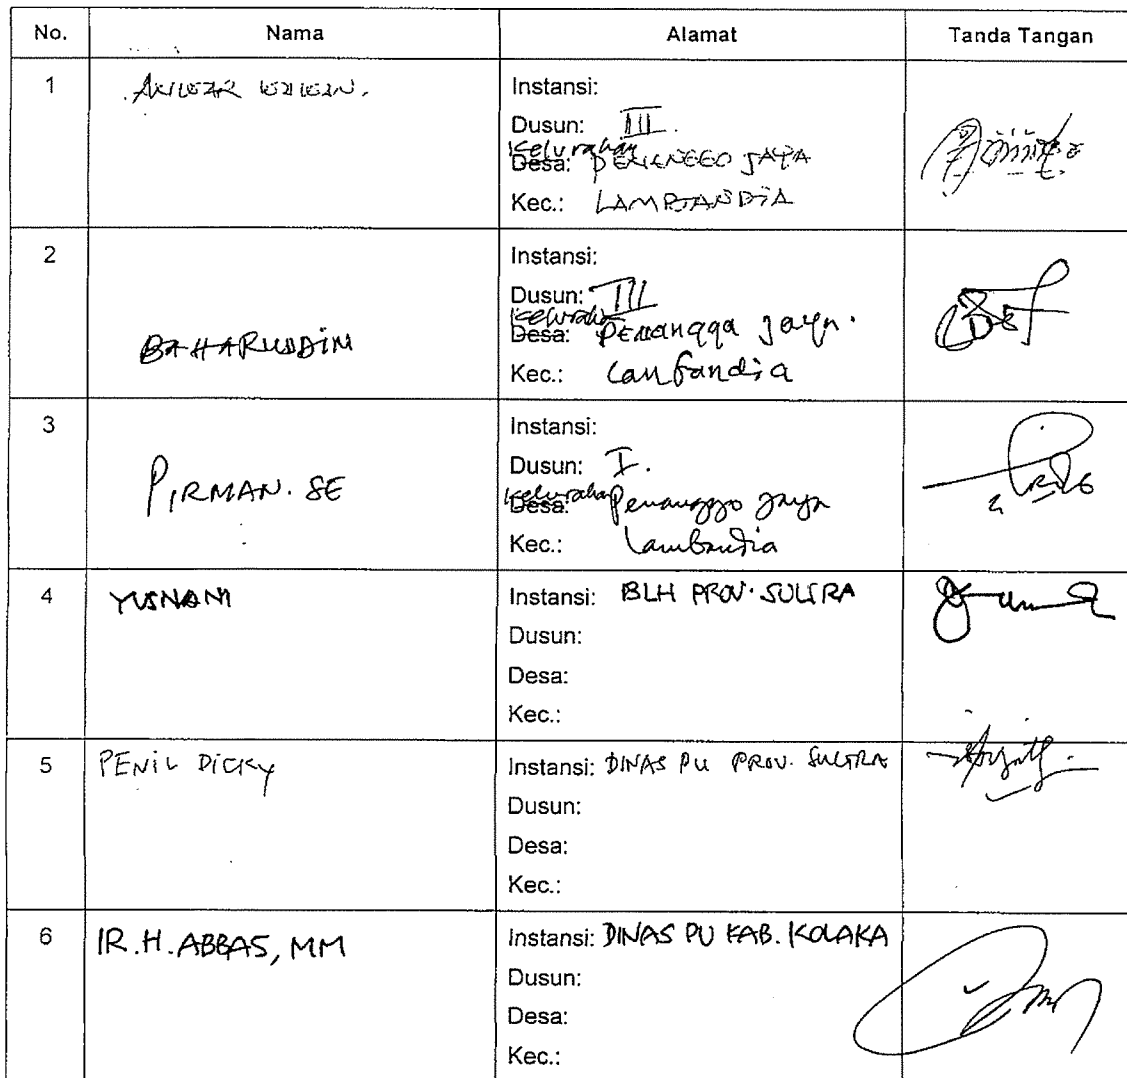 No. Nama Alamat Tanda Tangan
1 Instansi:
Dusun: III.
Kelurahan
Desa: JAYA
Kec.: LAMBANDIA
2 Instansi:
Dusun: III
Kelurahan
Desa: Penanggo Jaya.
BAHARUDDIN
Kec.: Lambandia
3 Instansi:
Dusun: I.
PIRMAN. SE
Kelurahan
Desa: Penanggo Jaya
Kec.: Lambandia
4 YUSNANI Instansi: BLH PROV. SULTRA
Dusun:
Desa:
Kec.:
5 PENIL DICKY Instansi: DINAS PU PROV. SULTRA
Dusun:
Desa:
Kec.:
6 IR. H. ABBAS, MM Instansi: DINAS PU KAB. KOLAKA
Dusun:
Desa:
Kec.: